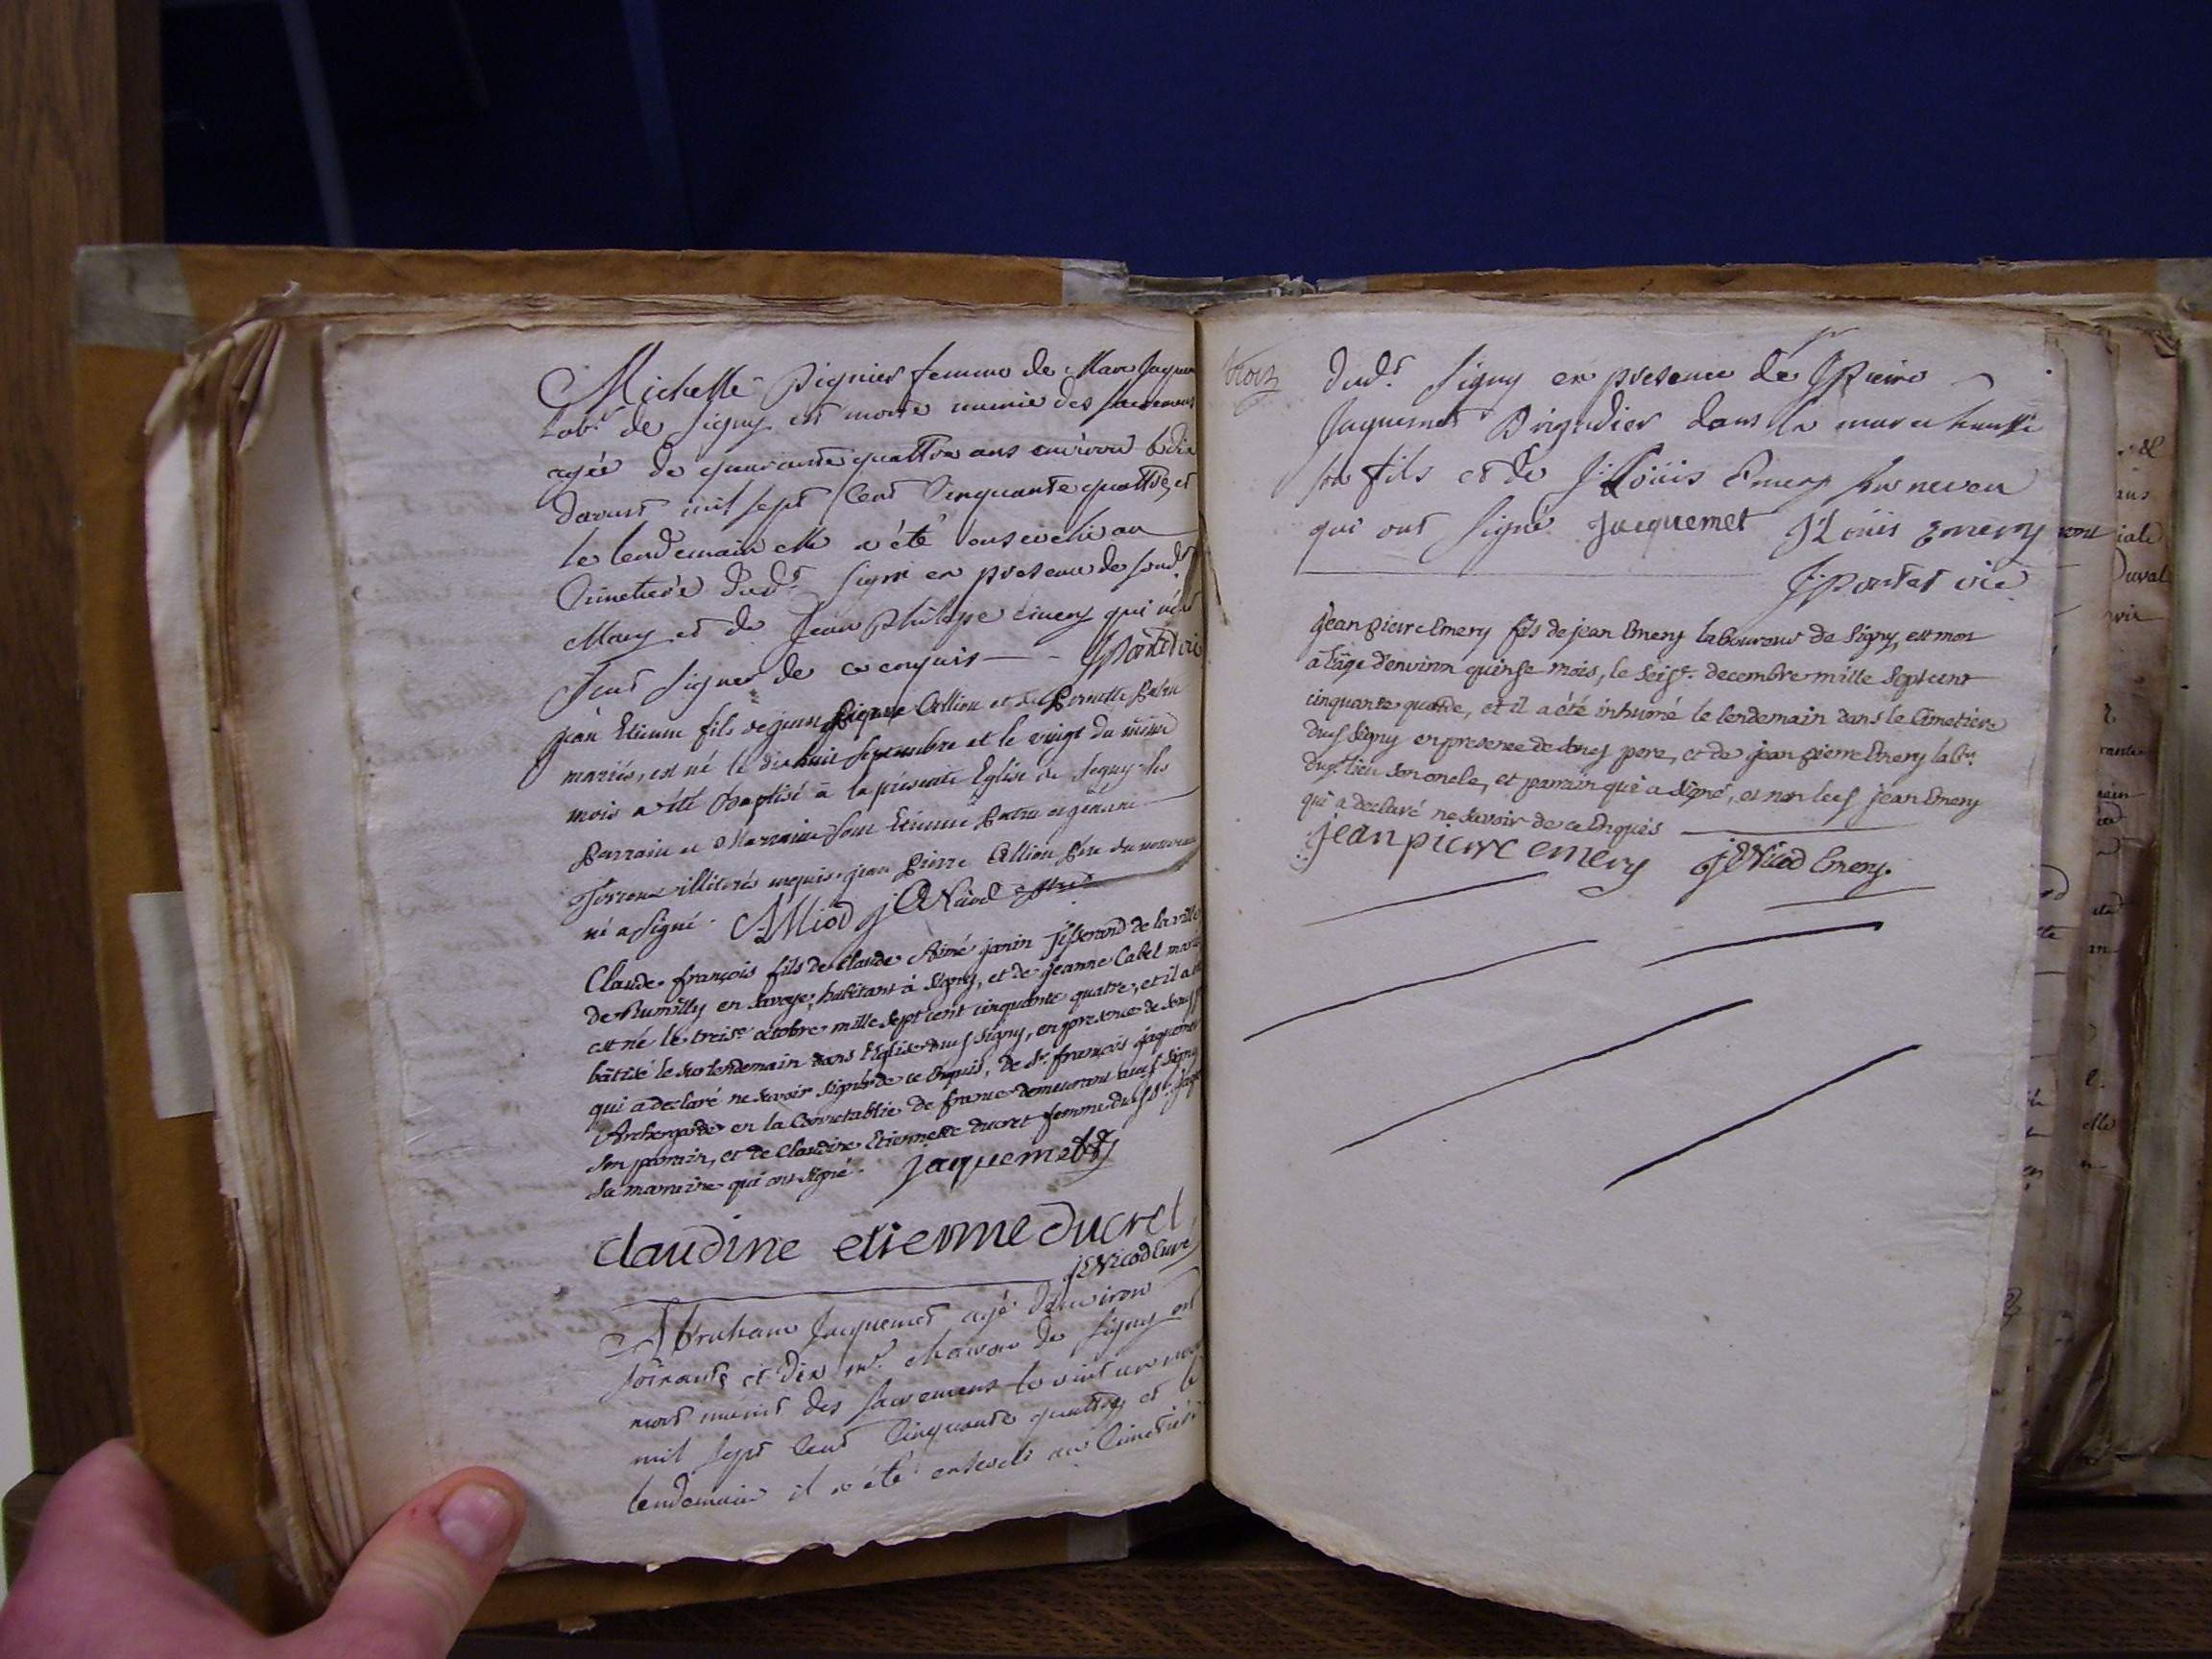 Michelle Pignier femme de Marc Jaquem
Lab.r de Signy est morte munie des sacremens
agée de quarante quattre ans environ le dix
daoust mil sept cent Cinquante quattre, et
le lendemain elle a été ensevelie au
Cimetiere dud.t Signi en presence de sond.t
Mary et de Jean Philippe Emery qui n'ont
sceut signer de ce enquis
jean Etienne fils de jean pierre et de Pernette
mariés, est né le dix huit septembre et le vingt du même
mois a été baptisé à la présente Eglise de Segny les
Parrain et Marraine sont Etienne
illiterés enquis. jean Pierre Pere du nouveau
né a signé.
Claude françois fils de Claude Aimé janin Tisserand de la ville
de Rumilly en Savoye, habitant à Signy, et de jeanne Cabel mariés
est né le treis.e octobre mille sept cent cinquante quatre, et il a été
bâtisé le surlendemain dans l'Eglise dud Signy, en presence de
qui a declaré ne savoir signer de ce enquis, de S.r françois jaquemet
Archergarde en la Connetablie de france demeurant aud Signy
son parrain, et de Claudine Etiennette Ducret femme dud S.r jaq
sa marraine qui ont signé. jaquemet
claudine etienne ducret
JE Nicod Curé
Abraham Jaquemet agé d'environ
soixante et dix M.e de Signy est
mort munit des sacremens le vint un
mil sept cent Cinquante quattre, et le
lendemain il a été enseveli au Cimetière
dud.t Signy en presence de Pierre
Jaquemet Brigadier dans la marechaussé
son fils et de J Loüis Emery son neveu
qui ont signé Jacquemet J Loüis Emery
jean pierre Emery fils de jean Emery laboureur de Signy, est mort
à l'âge d'environ quinse mois, le seis.e decembre mille sept cent
cinquante quatre, et il a été inhumé le lendemain dans le Cimetiere
dud Signy en presence de pere, et de jean pierre Emery lab.r
dud. lieu son oncle, et parrain qui a signé, et non led jean Emery
qui a declaré ne savoir de ce Enquis
jean pierre emery JE Nicod